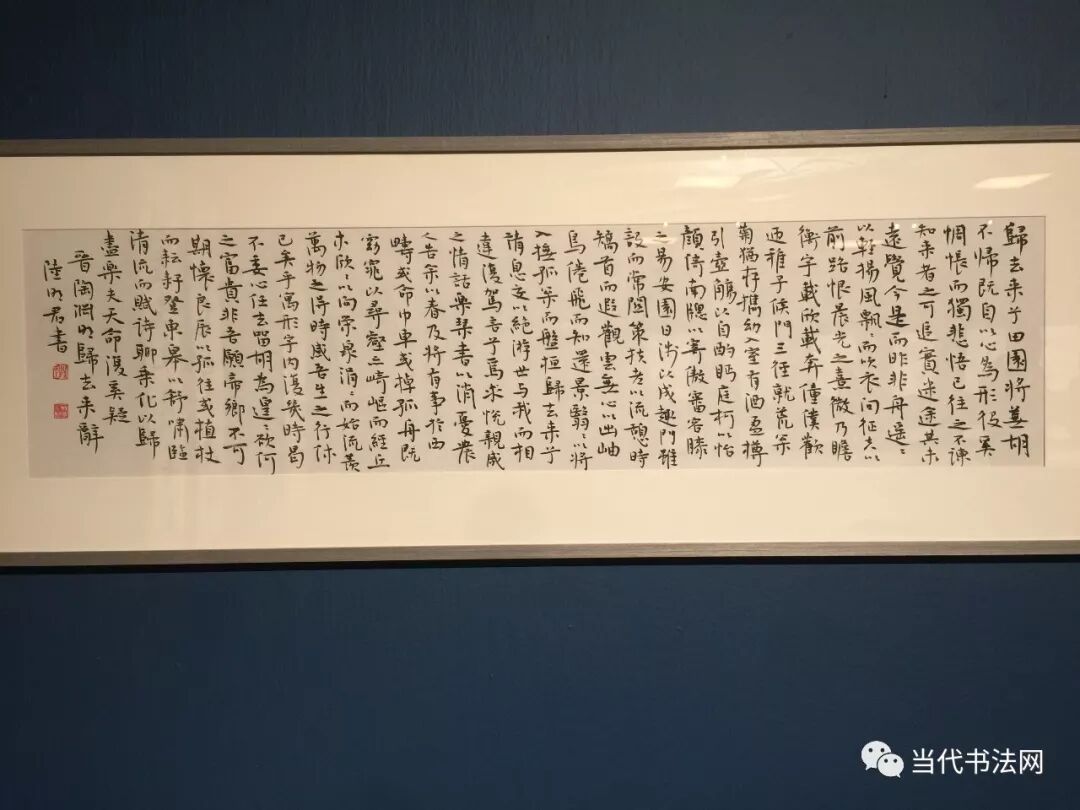 歸去来兮田園將蕪胡
不帰既自以心為形役奚
惆悵而獨悲悟已往之不諫
知来者之可追實迷途其未
遠覺今是而昨非舟遥〻
以輕揚風飄〻而吹衣问征夫以
前路恨晨光之熹微乃瞻
衡宇載欣載奔僮僕歡
迎稚子候門三徑就荒松
菊猶存攜幼入室有酒盈樽
引壺觴以自酌眄庭柯以怡
顔倚南牕以寄傲審容膝
之易安園日涉以成趣門雖
設而常關策扶老以流憩時
矯首而遐觀雲無心以出岫
鳥倦飛而知還景翳〻以將
入撫孤松而盤桓歸去来兮
請息交以絶游世与我而相
違復駕言兮焉求悦親戚
之情話樂琴書以消憂農
人告余以春及將有事於西
疇或命巾車或棹孤舟既
窈窕以尋壑亦崎嶇而經丘
木欣〻以向榮泉涓〻而始流羨
萬物之得時感吾生之行休
已矣乎寓形宇内復幾時曷
不委心任去留胡為遑〻欲何
之富貴非吾願帝鄉不可
期懷良辰以孤往或植杖
而耘耔登東皋以舒嘯臨
清流而賦詩聊乘化以歸
盡樂夫天命復奚疑
晋陶渊明歸去来辭
陸明君书
当代书法网